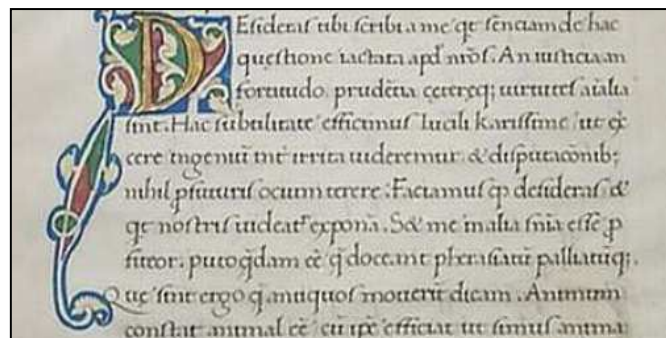 Desideras tibi scribi a me qt senciam de hac
questione iactata apd nr̄os. An iusticia an
fortitudo. prudētia ceteręq; uirtutes aīalia
sint. Hac subtilitate effecimus Lucili karissime ut ex
cere ingeniū int̄ irrita uideremur. & disputacōnib;
nihil pfuturis ocium terere. Faciamus qđ desideras. &
qt nostris uideatr exponā. S& me in alia snīa esse p
fiteor. puto qđam ēe q̄ doceant pheratiatū palliatūq;.
Que sint ergo q̄ antiquos mouerīt dicam. Animum
constat animal ēe cū ipē efficiat ut simus anima